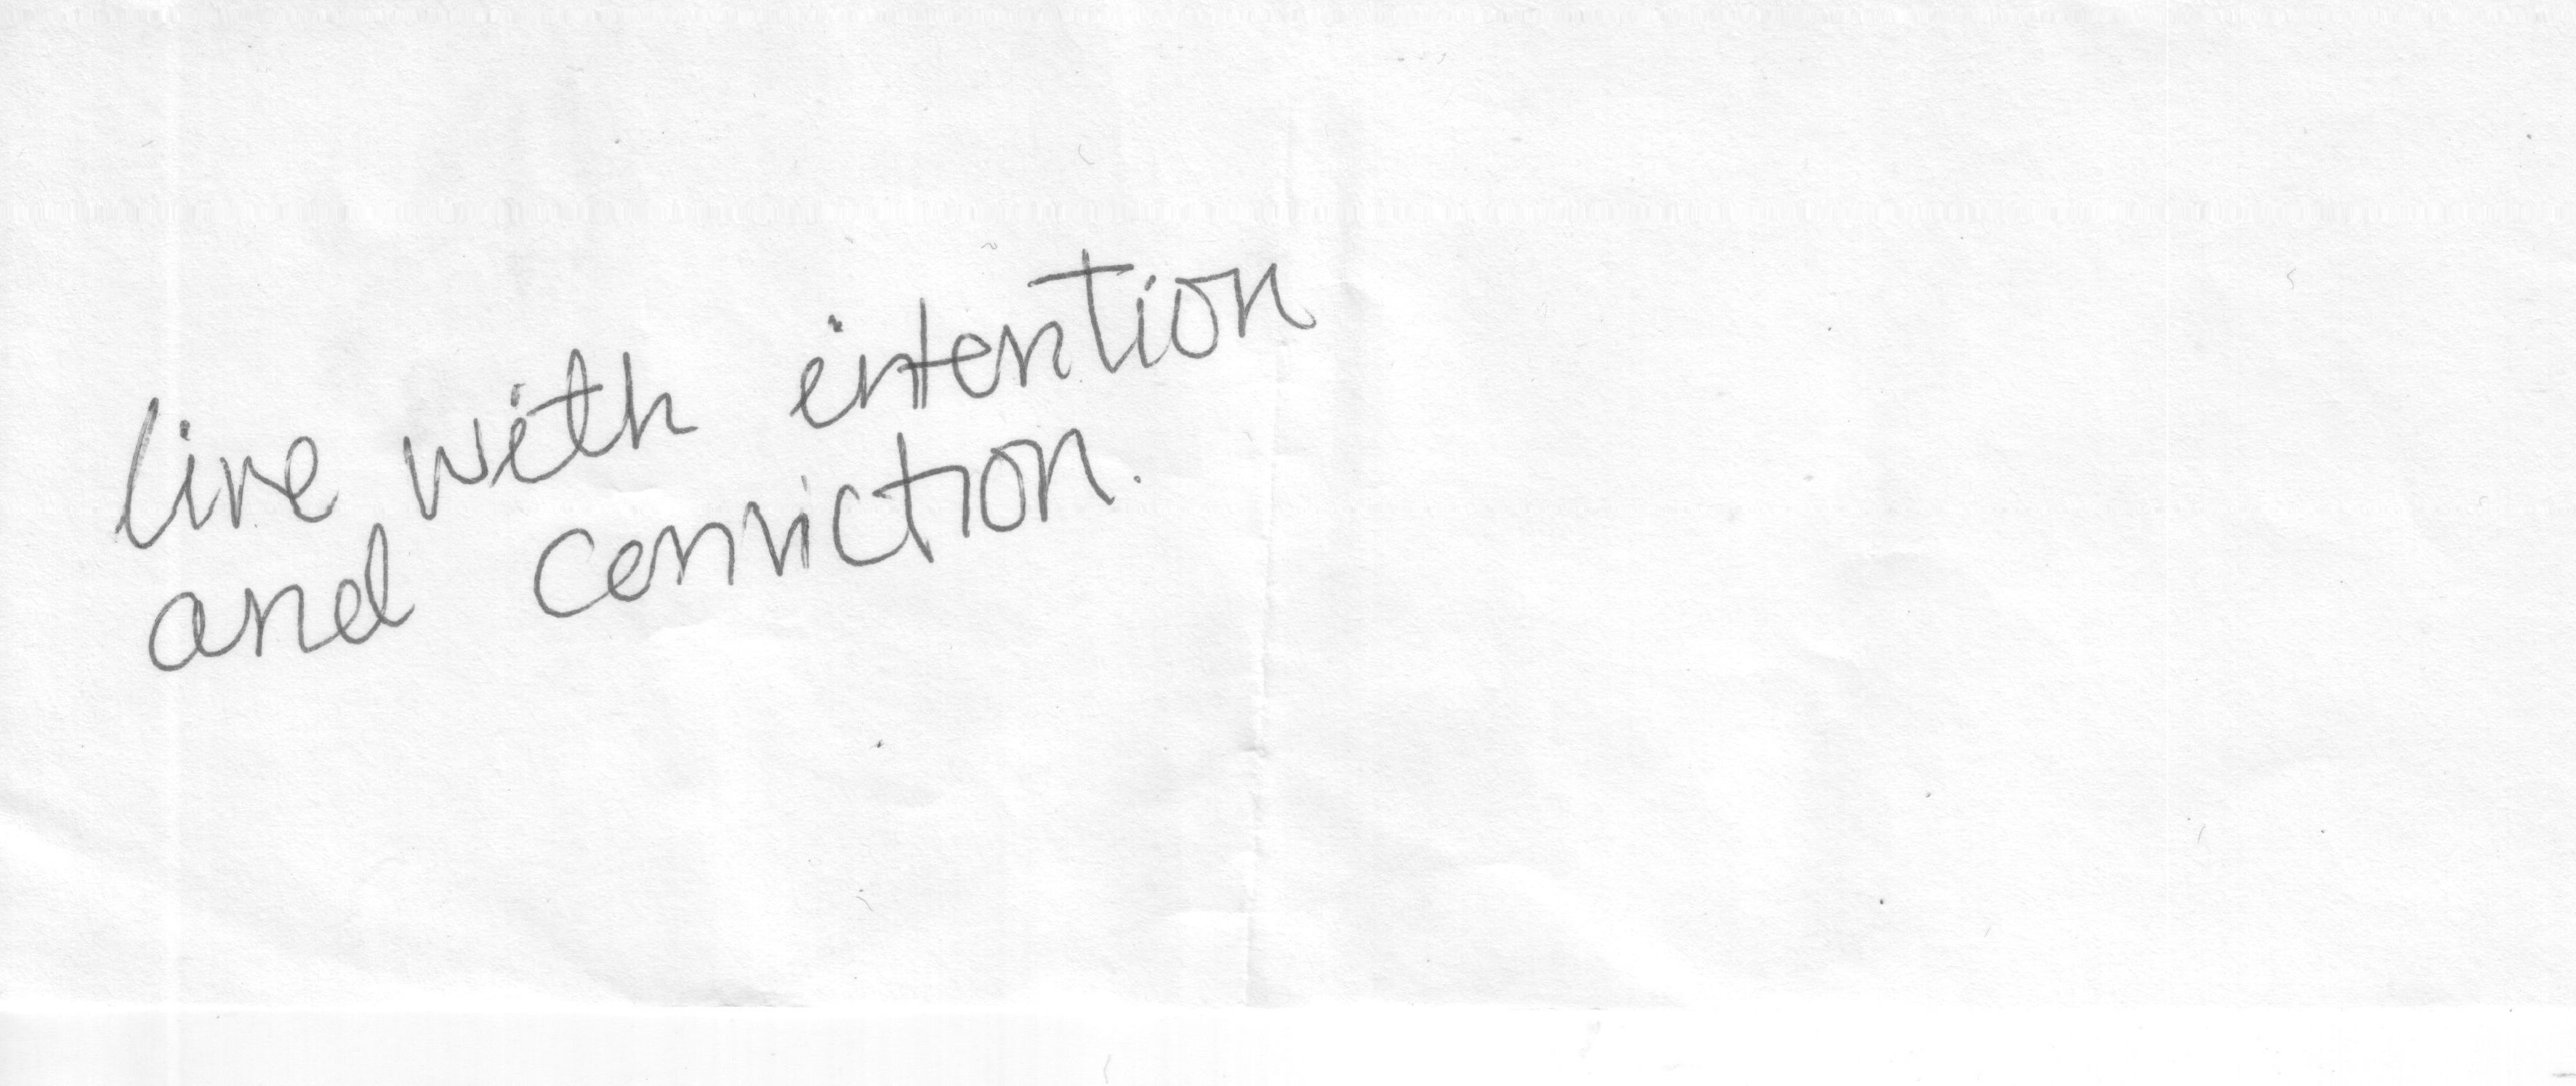 live with intention
and conviction.